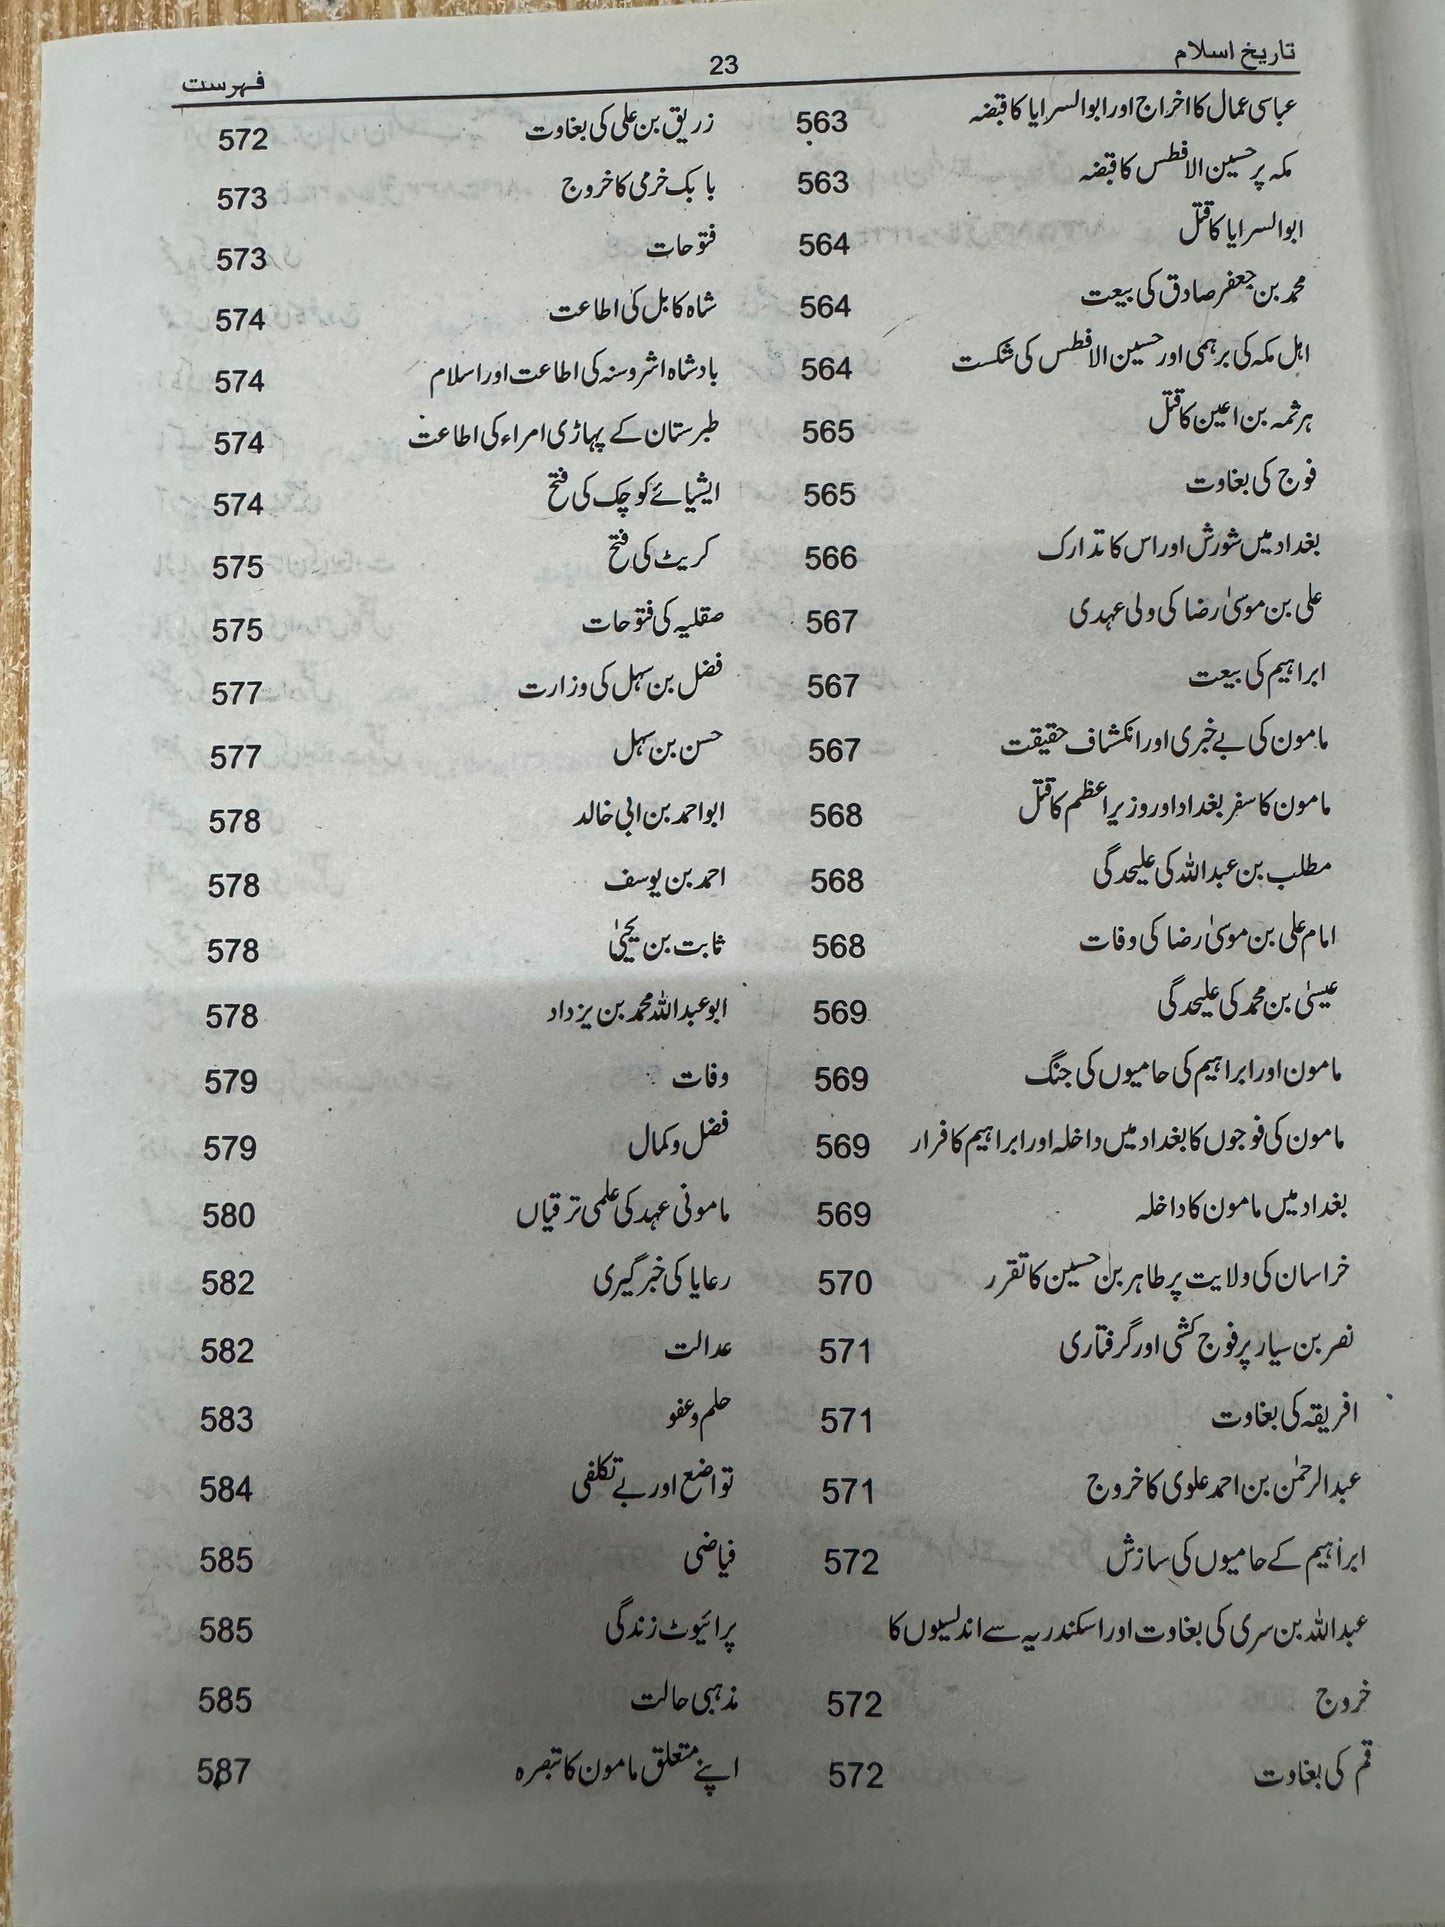 تاریخ اسلام
23
فہرست
عباسی عمال کا اخراج اور ابوالسرایا کا قبضہ 563
مکہ پر حسین الافطس کا قبضہ 563
ابوالسرایا کا قتل 564
محمد بن جعفر صادق کی بیعت 564
اہل مکہ کی برہمی اور حسین الافطس کی شکست 564
ہرثمہ بن اعین کا قتل 565
فوج کی بغاوت 565
بغداد میں شورش اور اس کا تدارک 566
علی بن موسیٰ رضا کی ولی عہدی 567
ابراہیم کی بیعت 567
مامون کی بے خبری اور انکشاف حقیقت 567
مامون کا سفر بغداد اور وزیر اعظم کا قتل 568
مطلب بن عبداللہ کی علیحدگی 568
امام علی بن موسیٰ رضا کی وفات 568
عیسیٰ بن محمد کی علیحدگی 569
مامون اور ابراہیم کی حامیوں کی جنگ 569
مامون کی فوجوں کا بغداد میں داخلہ اور ابراہیم کا فرار 569
بغداد میں مامون کا داخلہ 569
خراسان کی ولایت پر طاہر بن حسین کا تقرر 570
نصر بن سیار پر فوج کشی اور گرفتاری 571
افریقہ کی بغاوت 571
عبدالرحمٰن بن احمد علوی کا خروج 571
ابراہیم کے حامیوں کی سازش 572
عبداللہ بن سری کی بغاوت اور اسکندریہ سے اندلسیوں کا
خروج 572
قم کی بغاوت 572
زریق بن علی کی بغاوت 572
بابک خرمی کا خروج 573
فتوحات 573
شاہ کابل کی اطاعت 574
بادشاہ اشروسنہ کی اطاعت اور اسلام 574
طبرستان کے پہاڑی امراء کی اطاعت 574
ایشیائے کوچک کی فتح 574
کریٹ کی فتح 575
صقلیہ کی فتوحات 575
فضل بن سہل کی وزارت 577
حسن بن سہل 577
ابواحمد بن ابی خالد 578
احمد بن یوسف 578
ثابت بن یحییٰ 578
ابوعبداللہ محمد بن یزداد 578
وفات 579
فضل وکمال 579
مامونی عہد کی علمی ترقیاں 580
رعایا کی خبر گیری 582
عدالت 582
حلم وعفو 583
تواضع اور بے تکلفی 584
فیاضی 585
پرائیوٹ زندگی 585
مذہبی حالت 585
اپنے متعلق مامون کا تبصرہ 587